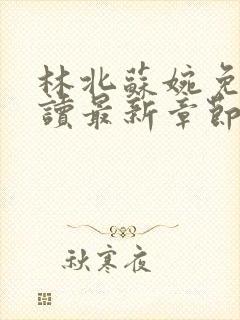 林北蘇婉免
讀最新章節
秋寒夜